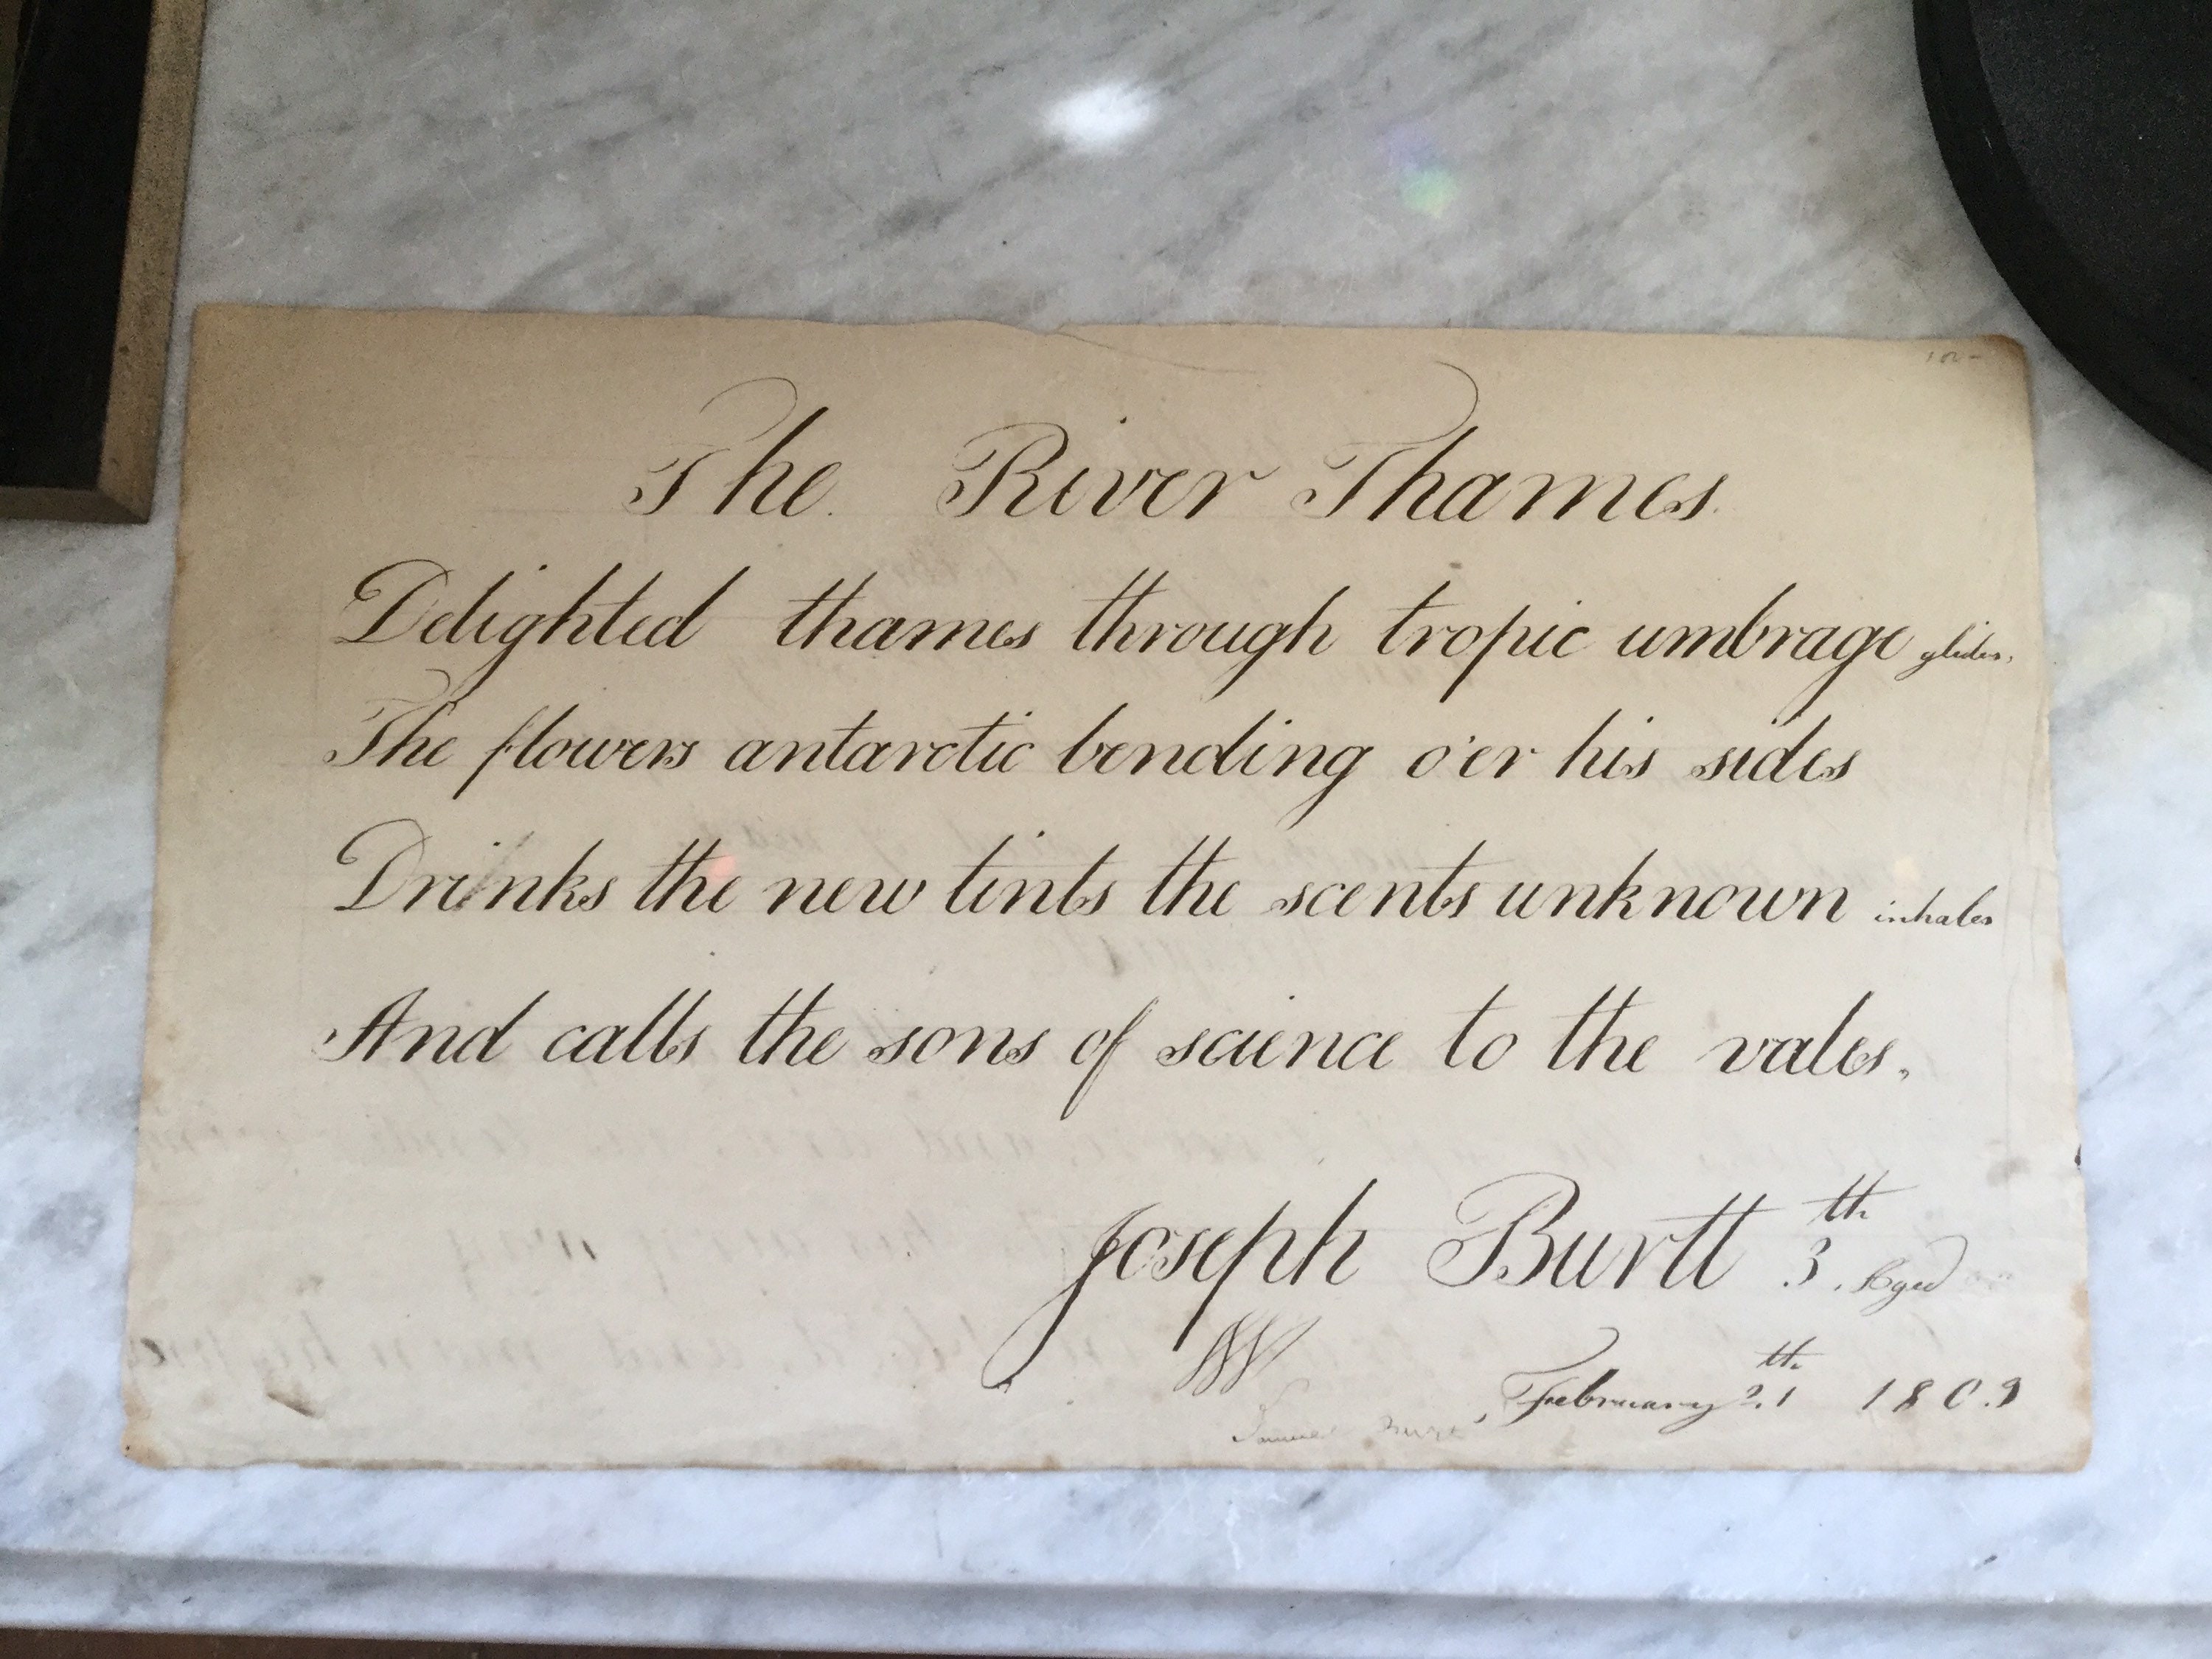 The River Thames.
Delighted thames through tropic umbrage glides,
The flowers antarctic bending o'er his sides
Drinks the new tints the scents unknown inhales
And calls the sons of science to the vales,
Joseph Burtt 3th. Aged
February 21th 1809